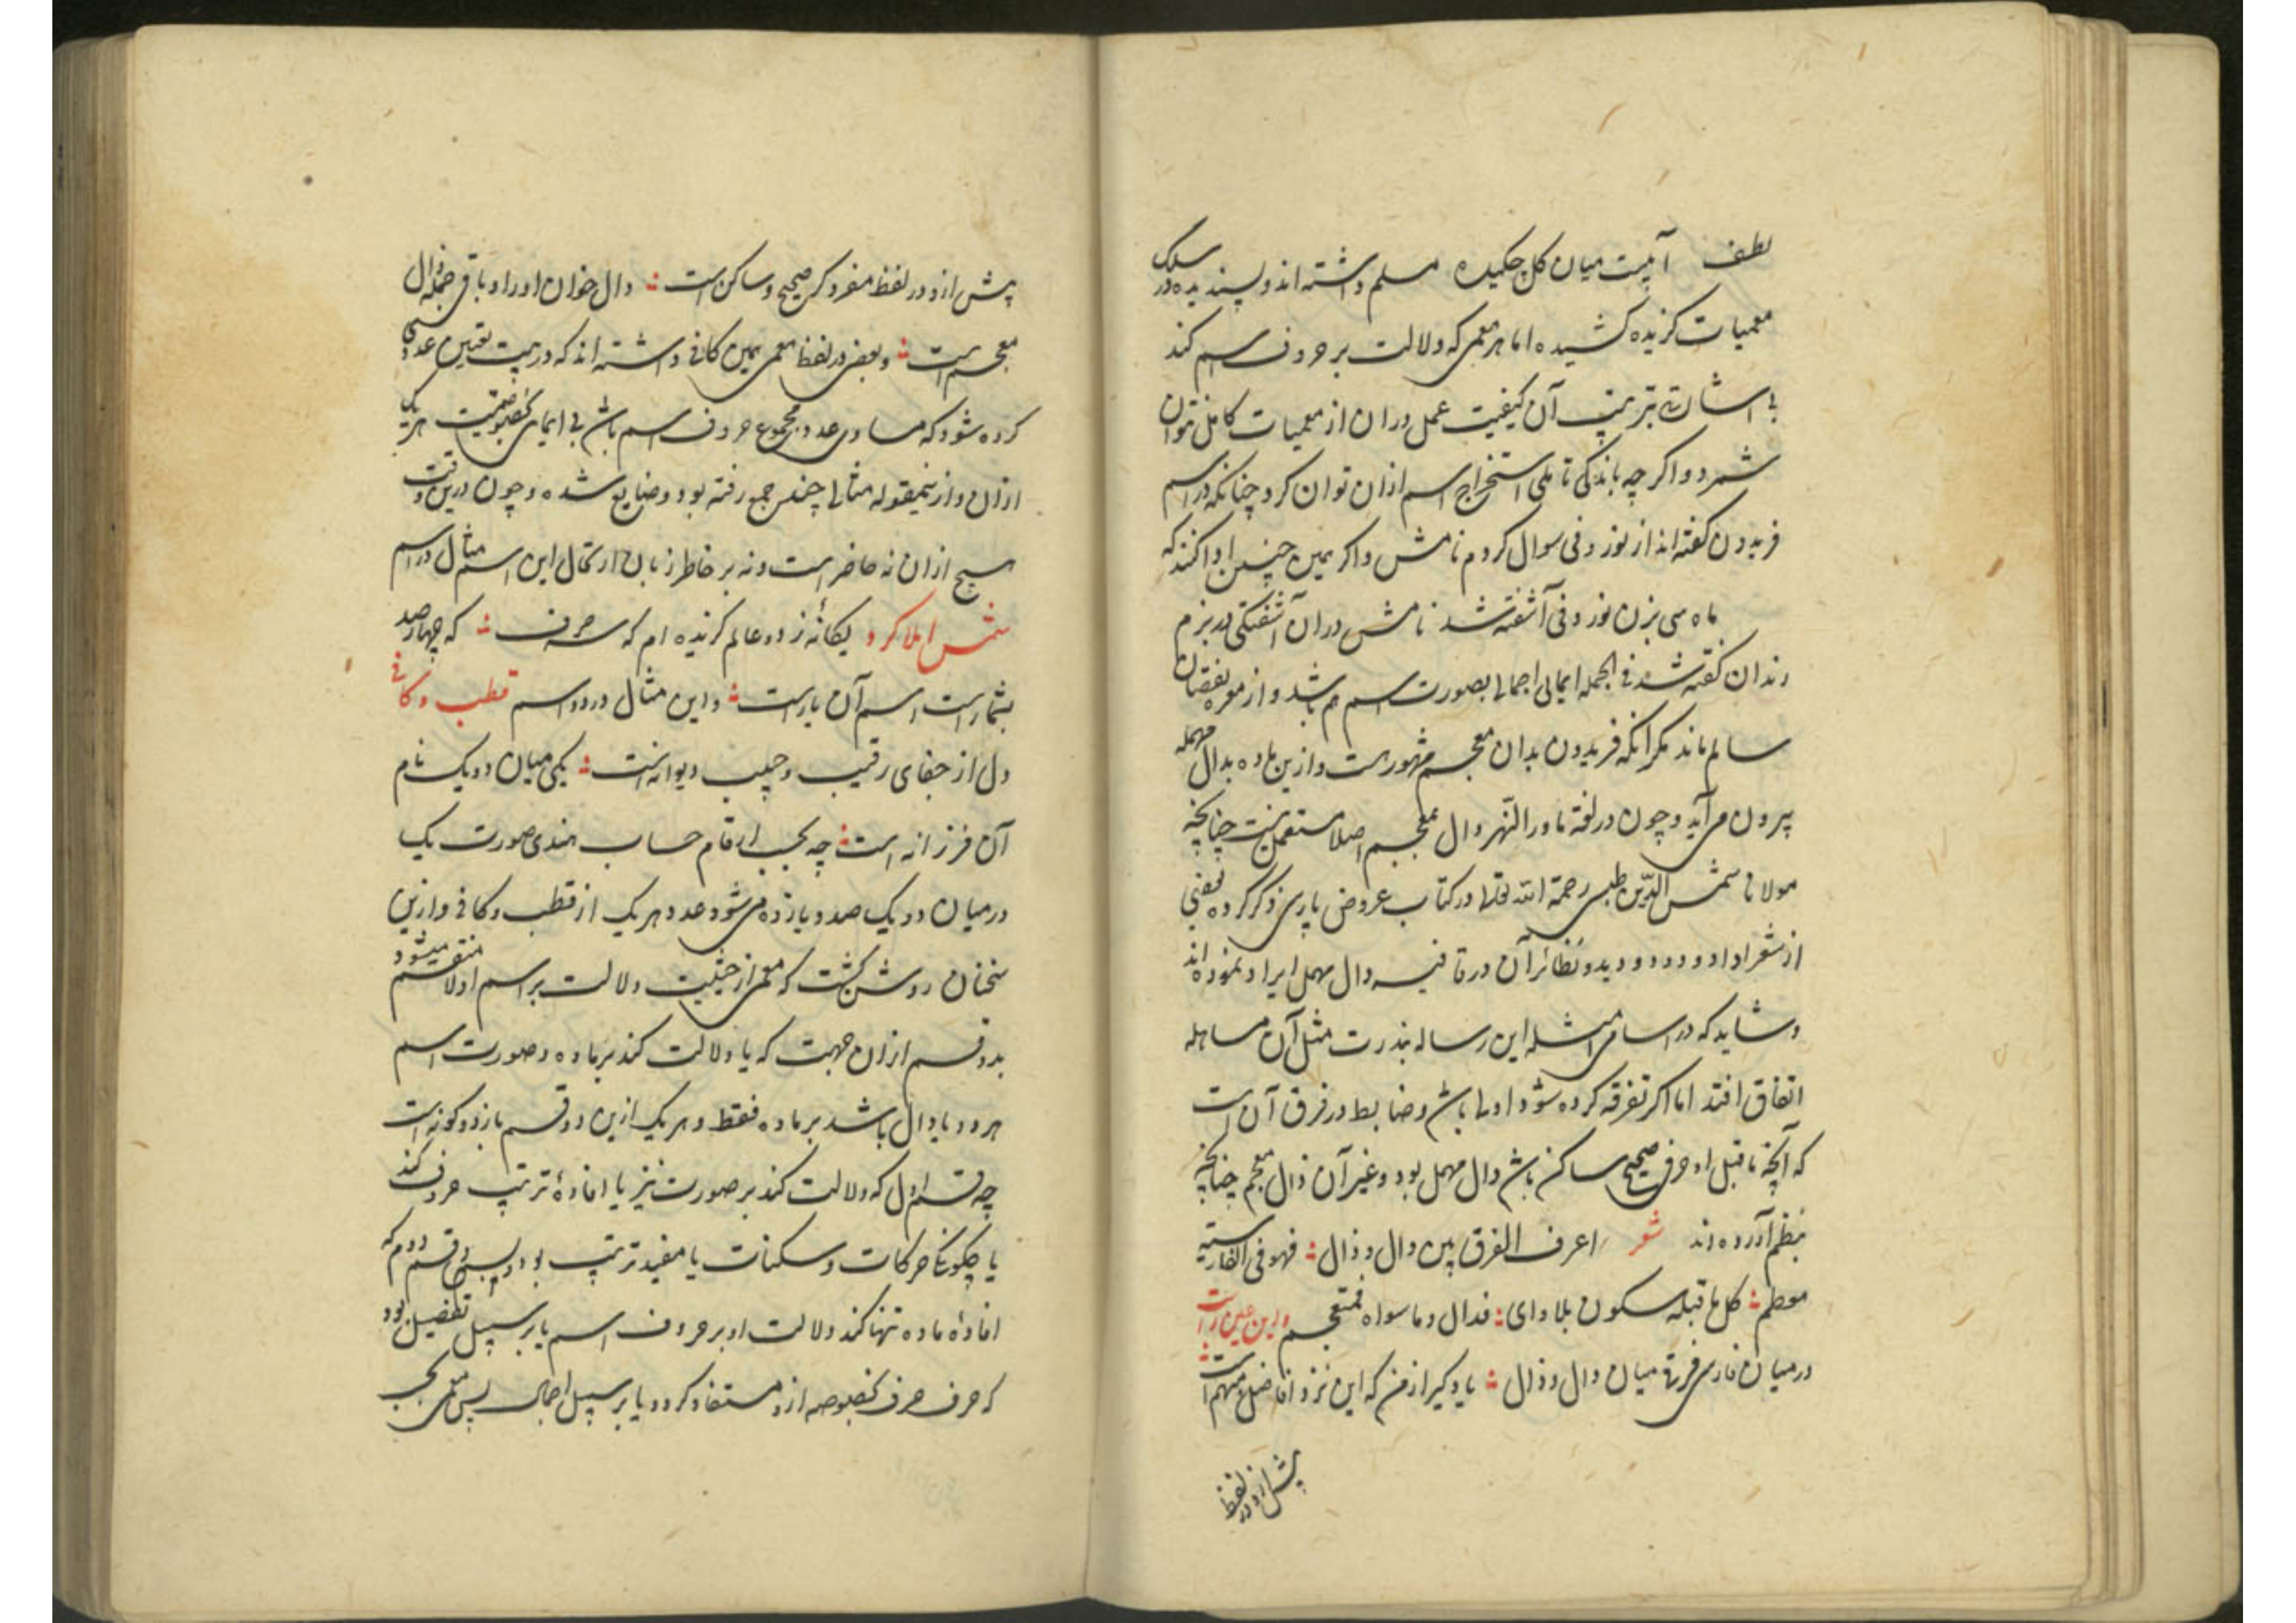 لطف آبیست میان کل چکیده مسلم داشته‌اند و پسندیده در سلک
معمیات کزیده کشیده اما هر معمی که دلالت بر حروف اسم کند
بی اشارتی بترتیب آن کیفیت عمل دران از معمیات کامل نتوان
شمرد و اکر چه باندکی تاملی استخراج اسم ازان توان کرد چنانکه در اسم
فریدون کفته‌اند از نوز و فی سوال کردم نامش و اکر همین چنین ادا کنند که
ماه سی بزن نوز و فی آشفته شد نامش دران آشفتکی در بزم
رندان کفته شد فی الجمله ایمائی اجمالی بصورت اسم هم باشد و از معره نقصان
سالم ماند مکر آنکه فریدون بدال معجم مشهورست و ازین ماده بدال مهمله
بیرون می‌آید و چون در لغة ماورا النهر دال معجم اصلا مستعمل نیست چنانچه
مولانا شمس الدین طبسی رحمة الله تعالی در کتاب عروض پارسی ذکر کرده بعضی
از شعرا داد و دود و دید و نظائر آن در قافیه دال مهمل ایراد نموده‌اند
و شاید که در اسامی امثله این رساله بندرت مثل آن مساهله
اتفاق افتد اما اکر تفرقه کرده شود اولی باشد و ضابط در فرق آن است
که آنچه ماقبل او حرفی صحیح ساکن باشد دال مهمل بود و غیر آن ذال معجم چنانچه
بنظم آورده‌اند شعر اعرف الفرق بین دال و ذال فهو فی الفارسیة
معظم کل ما قبله سکون بلا وای فدال و ما سواه فمعجم و این عین راست
در میان فارسی فرق میان دال و ذال یاد کیر از من که این نزد افاضل مبهم است
پیش از و در لفظ
پیش از و در لفظ مفرد کر صحیح و ساکن است دال خوان او را و باقی جمله ذال
معجم است و بعضی در لفظ معمی بهمین کافی داشته‌اند که در بیت تعیین عددی
کرده شود که مساوی عدد مجموع حروف اسم باشد بی ایمای بخصوصیت هر یک
ازان و ازین مقوله مثالی چند جمع رفته بود و ضایع شده و چون درین وقت
هیچ ازان نه حاضر است و نه بر خاطر زبان ارتجال این مثال در اسم
شمس املا کرد یکانهٔ ز دو عالم کزیده‌ام که سه حرف که چهارصد
بشمار است اسم آن یار است و این مثال در دو اسم قطب و کافی
دل از جفای رقیب و حبیب دیوانه‌ است یکی میان دو یک نام
آن فرزانه است چه بحسب ارقام حساب هندی صورت یک
در میان دو یک صد و یازده می‌شود عدد هر یک از قطب و کافی و ازین
سخنان روشن کشت که معمی از حیثیت دلالت بر اسم اولا منقسم میشود
بدو قسم ازان جهت که یا دلالت کند بر ماده و صورت اسم
هر دو یا دال باشد بر ماده فقط و هر یک ازین دو قسم باز دو کونه است
چه قسم اول که دلالت کند بر صورت نیز یا افادهٔ ترتیب حروف کند
یا چکونکی حرکات و سکنات یا مفید ترتیب بود و بس و قسم دوم که
افادهٔ ماده تنها کند دلالت او بر حروف اسم یا بر سبیل تفصیل بود
که حرف حرف بخصوصه ازو مستفاد کردد یا بر سبیل اجمال پس معمی بحسب